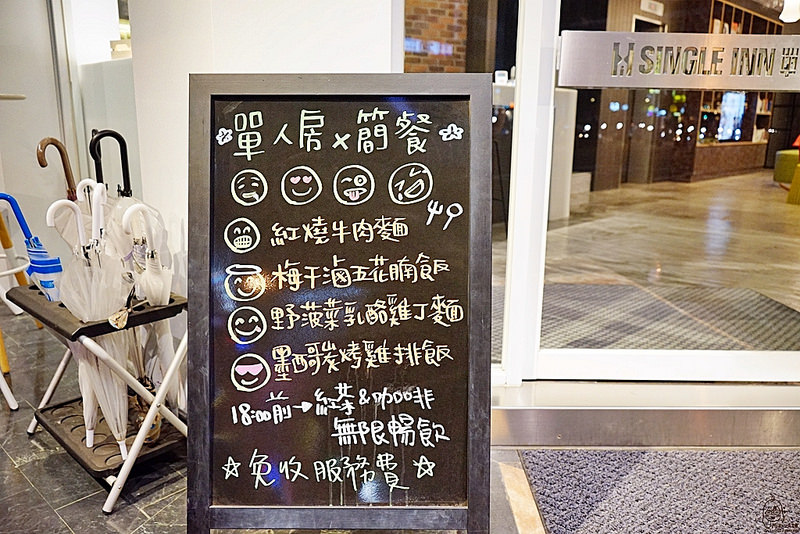 SINGLE INN 單
單人房×簡餐
49
紅燒牛肉麵
梅干滷五花腩飯
野菠菜乳酪雞丁麵
墨西哥炭烤雞排飯
18:00前→紅茶&咖啡
無限暢飲
☆免收服務費☆